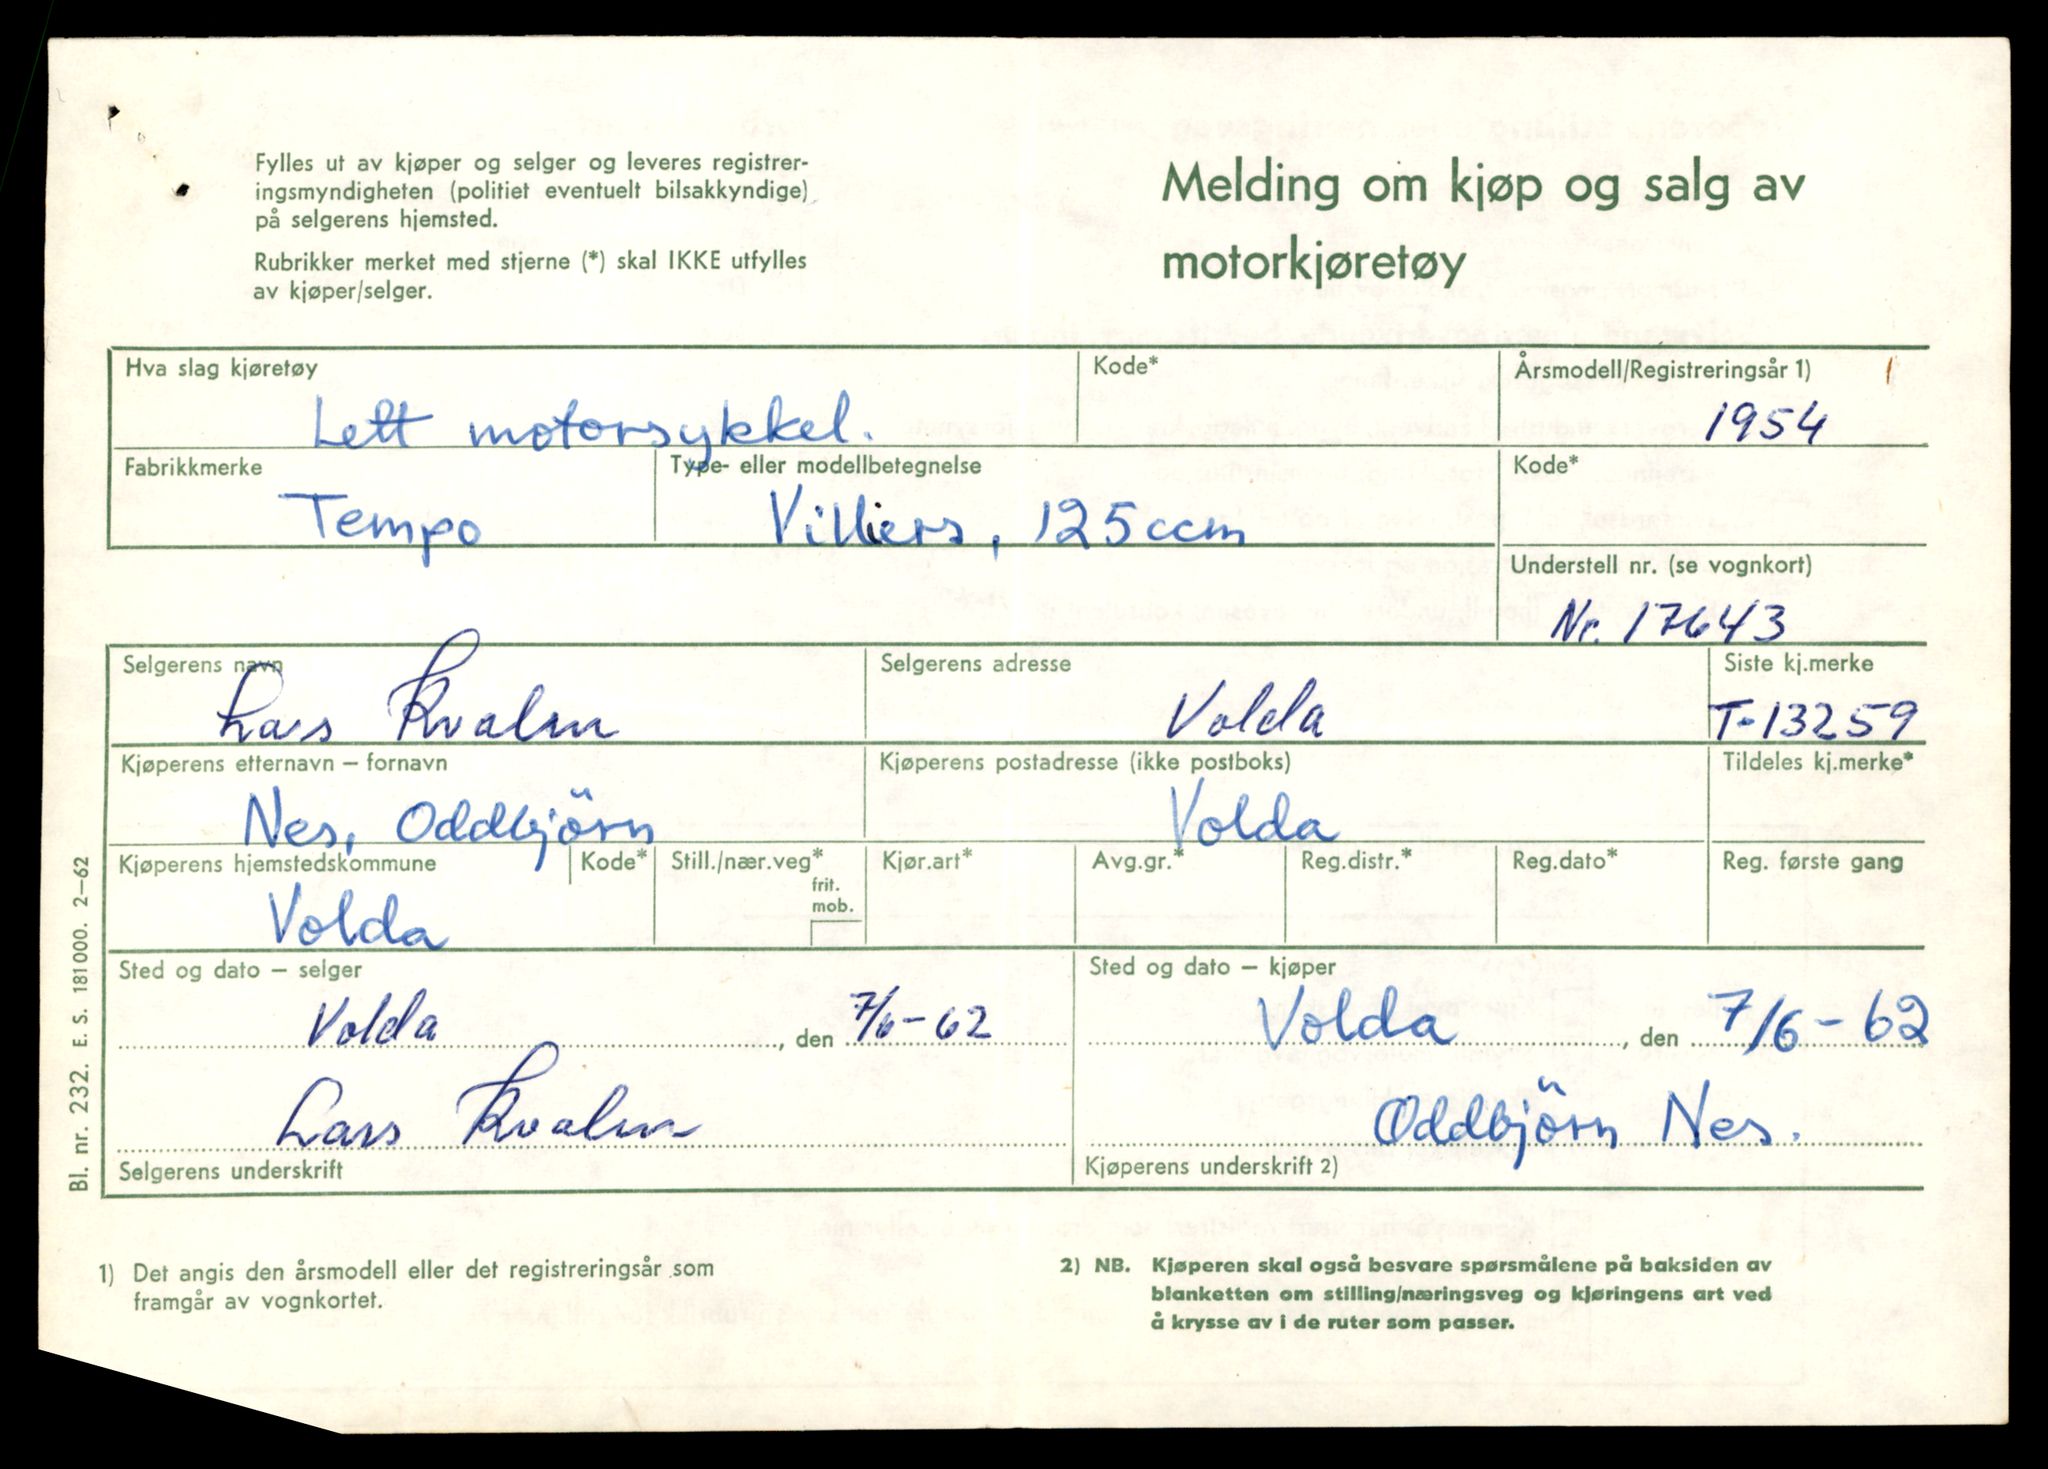 Fylles ut av kjøper og selger og leveres registrer-
ingsmyndigheten (politiet eventuelt bilsakkyndige)
på selgerens hjemsted.
Rubrikker merket med stjerne (*) skal IKKE utfylles
av kjøper/selger.
Melding om kjøp og salg av
motorkjøretøy
Hva slag kjøretøy
Kode*
Årsmodell/Registreringsår 1)
Lett motorsykkel.
1954
Fabrikkmerke
Type- eller modellbetegnelse
Kode*
Tempo
Villiers, 125 ccm
Understell nr. (se vognkort)
Nr. 17643
Selgerens navn
Selgerens adresse
Siste kj.merke
Lars Kvalen
Volda
T-13259
Kjøperens etternavn – fornavn
Kjøperens postadresse (ikke postboks)
Tildeles kj.merke*
Nes, Oddbjörn
Volda
Kjøperens hjemstedskommune
Kode*
Still./nær.veg*
frit.
mob.
Kjør.art*
Avg.gr.*
Reg.distr.*
Reg.dato*
Reg. første gang
Volda
Sted og dato – selger
Sted og dato – kjøper
Volda, den 7/6-62
Volda, den 7/6-62
Lars Kvalen
Oddbjörn Nes.
Selgerens underskrift
Kjøperens underskrift 2)
1) Det angis den årsmodell eller det registreringsår som
framgår av vognkortet.
2) NB. Kjøperen skal også besvare spørsmålene på baksiden av
blanketten om stilling/næringsveg og kjøringens art ved
å krysse av i de ruter som passer.
Bl. nr. 232. E. S. 181000. 2–62